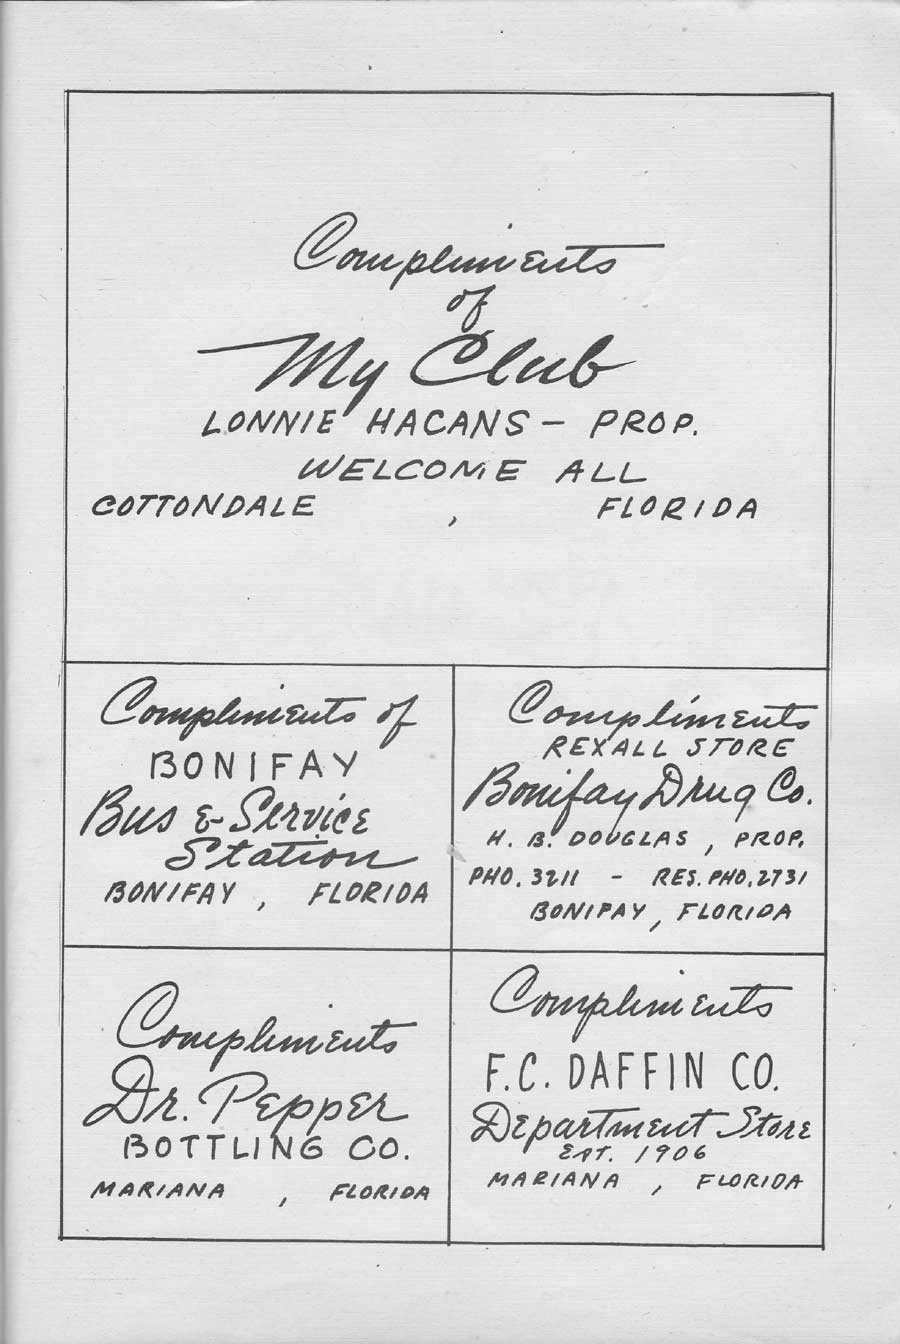 Compliments
of
My Club
LONNIE HACANS - PROP.
WELCOME ALL
COTTONDALE , FLORIDA
Compliments of
BONIFAY
Bus & Service
Station
BONIFAY , FLORIDA
Compliments
REXALL STORE
Bonifay Drug Co.
H. B. DOUGLAS , PROP.
PHO. 3211 - RES. PHO. 2731
BONIFAY , FLORIDA
Compliments
Dr. Pepper
BOTTLING CO.
MARIANA , FLORIDA
Compliments
F.C. DAFFIN CO.
Department Store
EST. 1906
MARIANA , FLORIDA